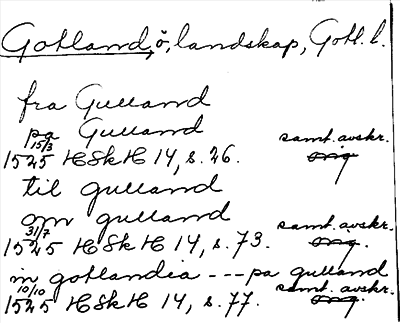 Gotland, ö, landskap, Gotl. l.
fra Gulland
pa Gulland
15/3 samt. avskr.
1525 HSkH 14, s. 26. orig
til gulland
om gulland
31/7 samt. avskr.
1525 HSkH 14, s. 73. orig.
in gotlandia --- pa gulland
10/10 samt. avskr.
1525 HSkH 14, s. 77. orig.